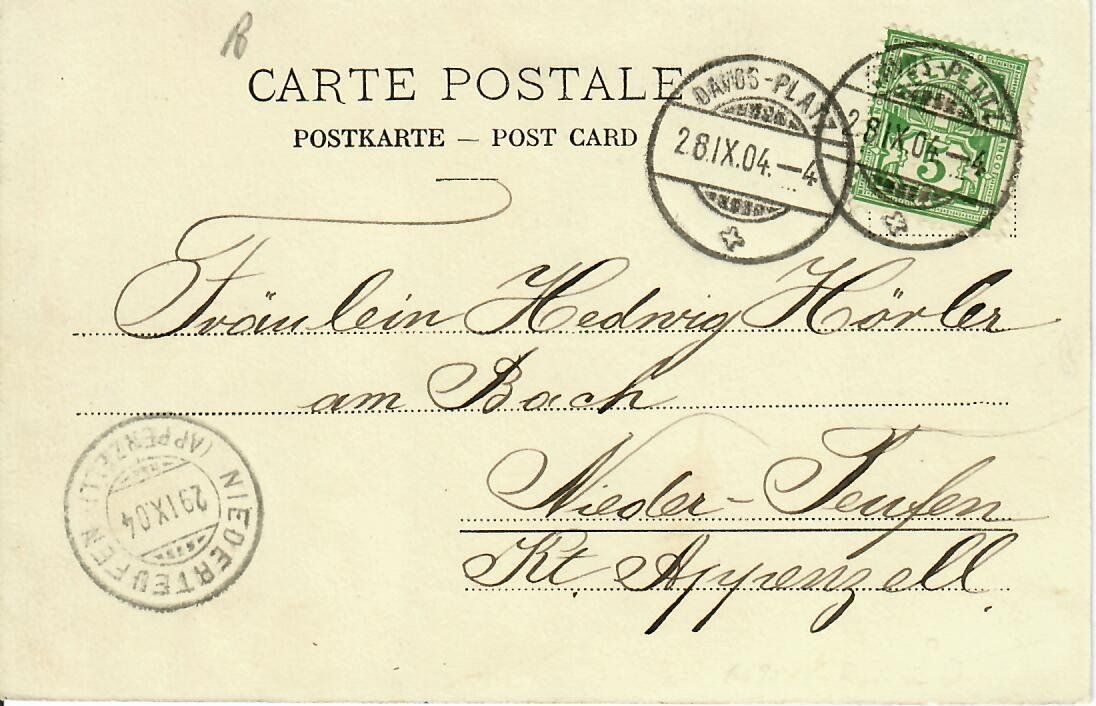 CARTE POSTALE
POSTKARTE — POST CARD
DAVOS-PLATZ
28.IX.04.—4
28.IX.04.—4
5
FRANCO
Fräulein Hedwig Hörler
am Bach
Nieder-Teufen
Kt. Appenzell.
NIEDERTEUFEN
(APPENZELL)
29.IX.04